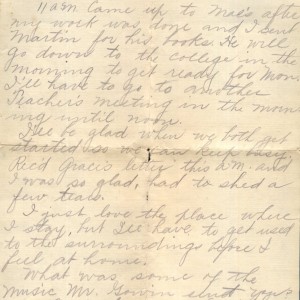 11 a.m. came up to Mac's after
my work was done and I sent
Martin for his books. He will
go down to the college in the
morning to get ready for Mon
I'll have to go to another
Teacher's meeting in the morn
ing until noon.
I'll be glad when we both get
started so we can keep busy
Rec'd Grace's letter this a.m. and
I was so glad, had to shed a
few tears.
I just love the place where
I stay, but I'll have to get used
to the surroundings before I
feel at home.
What was some of the
music Mr. sent you?